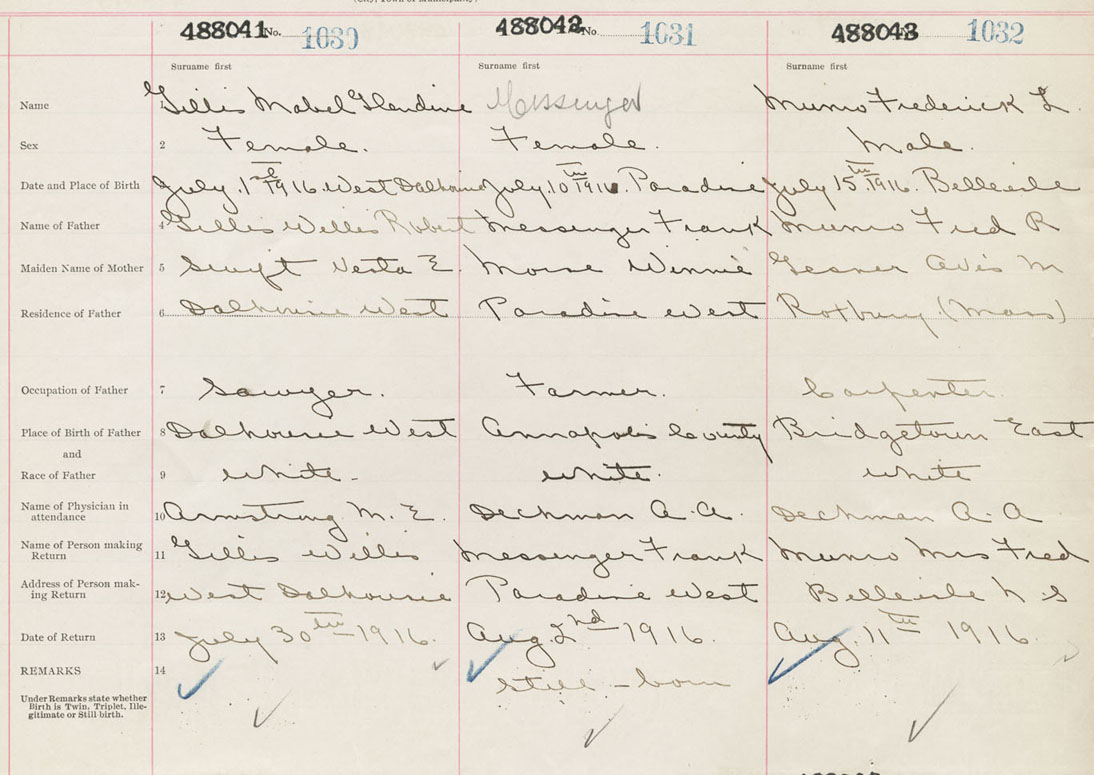 (City, Town or Municipality)
488041 No. 1030 488042 No. 1031 488043 1032
Surname first Surname first Surname first
Name 1 Gillis Mabel Glendine Messenger Munro Frederick L.
Sex 2 Female. Female. Male.
Date and Place of Birth July 1st 1916 West Dalhousie July 10th 1916. Paradise July 15th 1916. Belleisle
Name of Father 4 Gillis Willis Robert Messenger Frank Munro Fred R
Maiden Name of Mother 5 Swift Vesta E. Morse Winnie Gesner Avis M
Residence of Father 6 Dalhousie West Paradise West Roxbury (Mass)
Occupation of Father 7 Sawyer. Farmer. Carpenter.
Place of Birth of Father 8 Dalhousie West Annapolis County Bridgetown East
and
Race of Father 9 White - White. White
Name of Physician in
attendance 10 Armstrong M. E. Deckman A. A. Deckman A. A
Name of Person making
Return 11 Gillis Willis Messenger Frank Munro Mrs Fred
Address of Person mak-
ing Return 12 West Dalhousie Paradise West Belleisle N S
Date of Return 13 July 30th 1916. Aug 2nd 1916. Aug. 11th 1916.
REMARKS 14
Still-born
Under Remarks state whether
Birth is Twin, Triplet, Ille-
gitimate or Still birth.